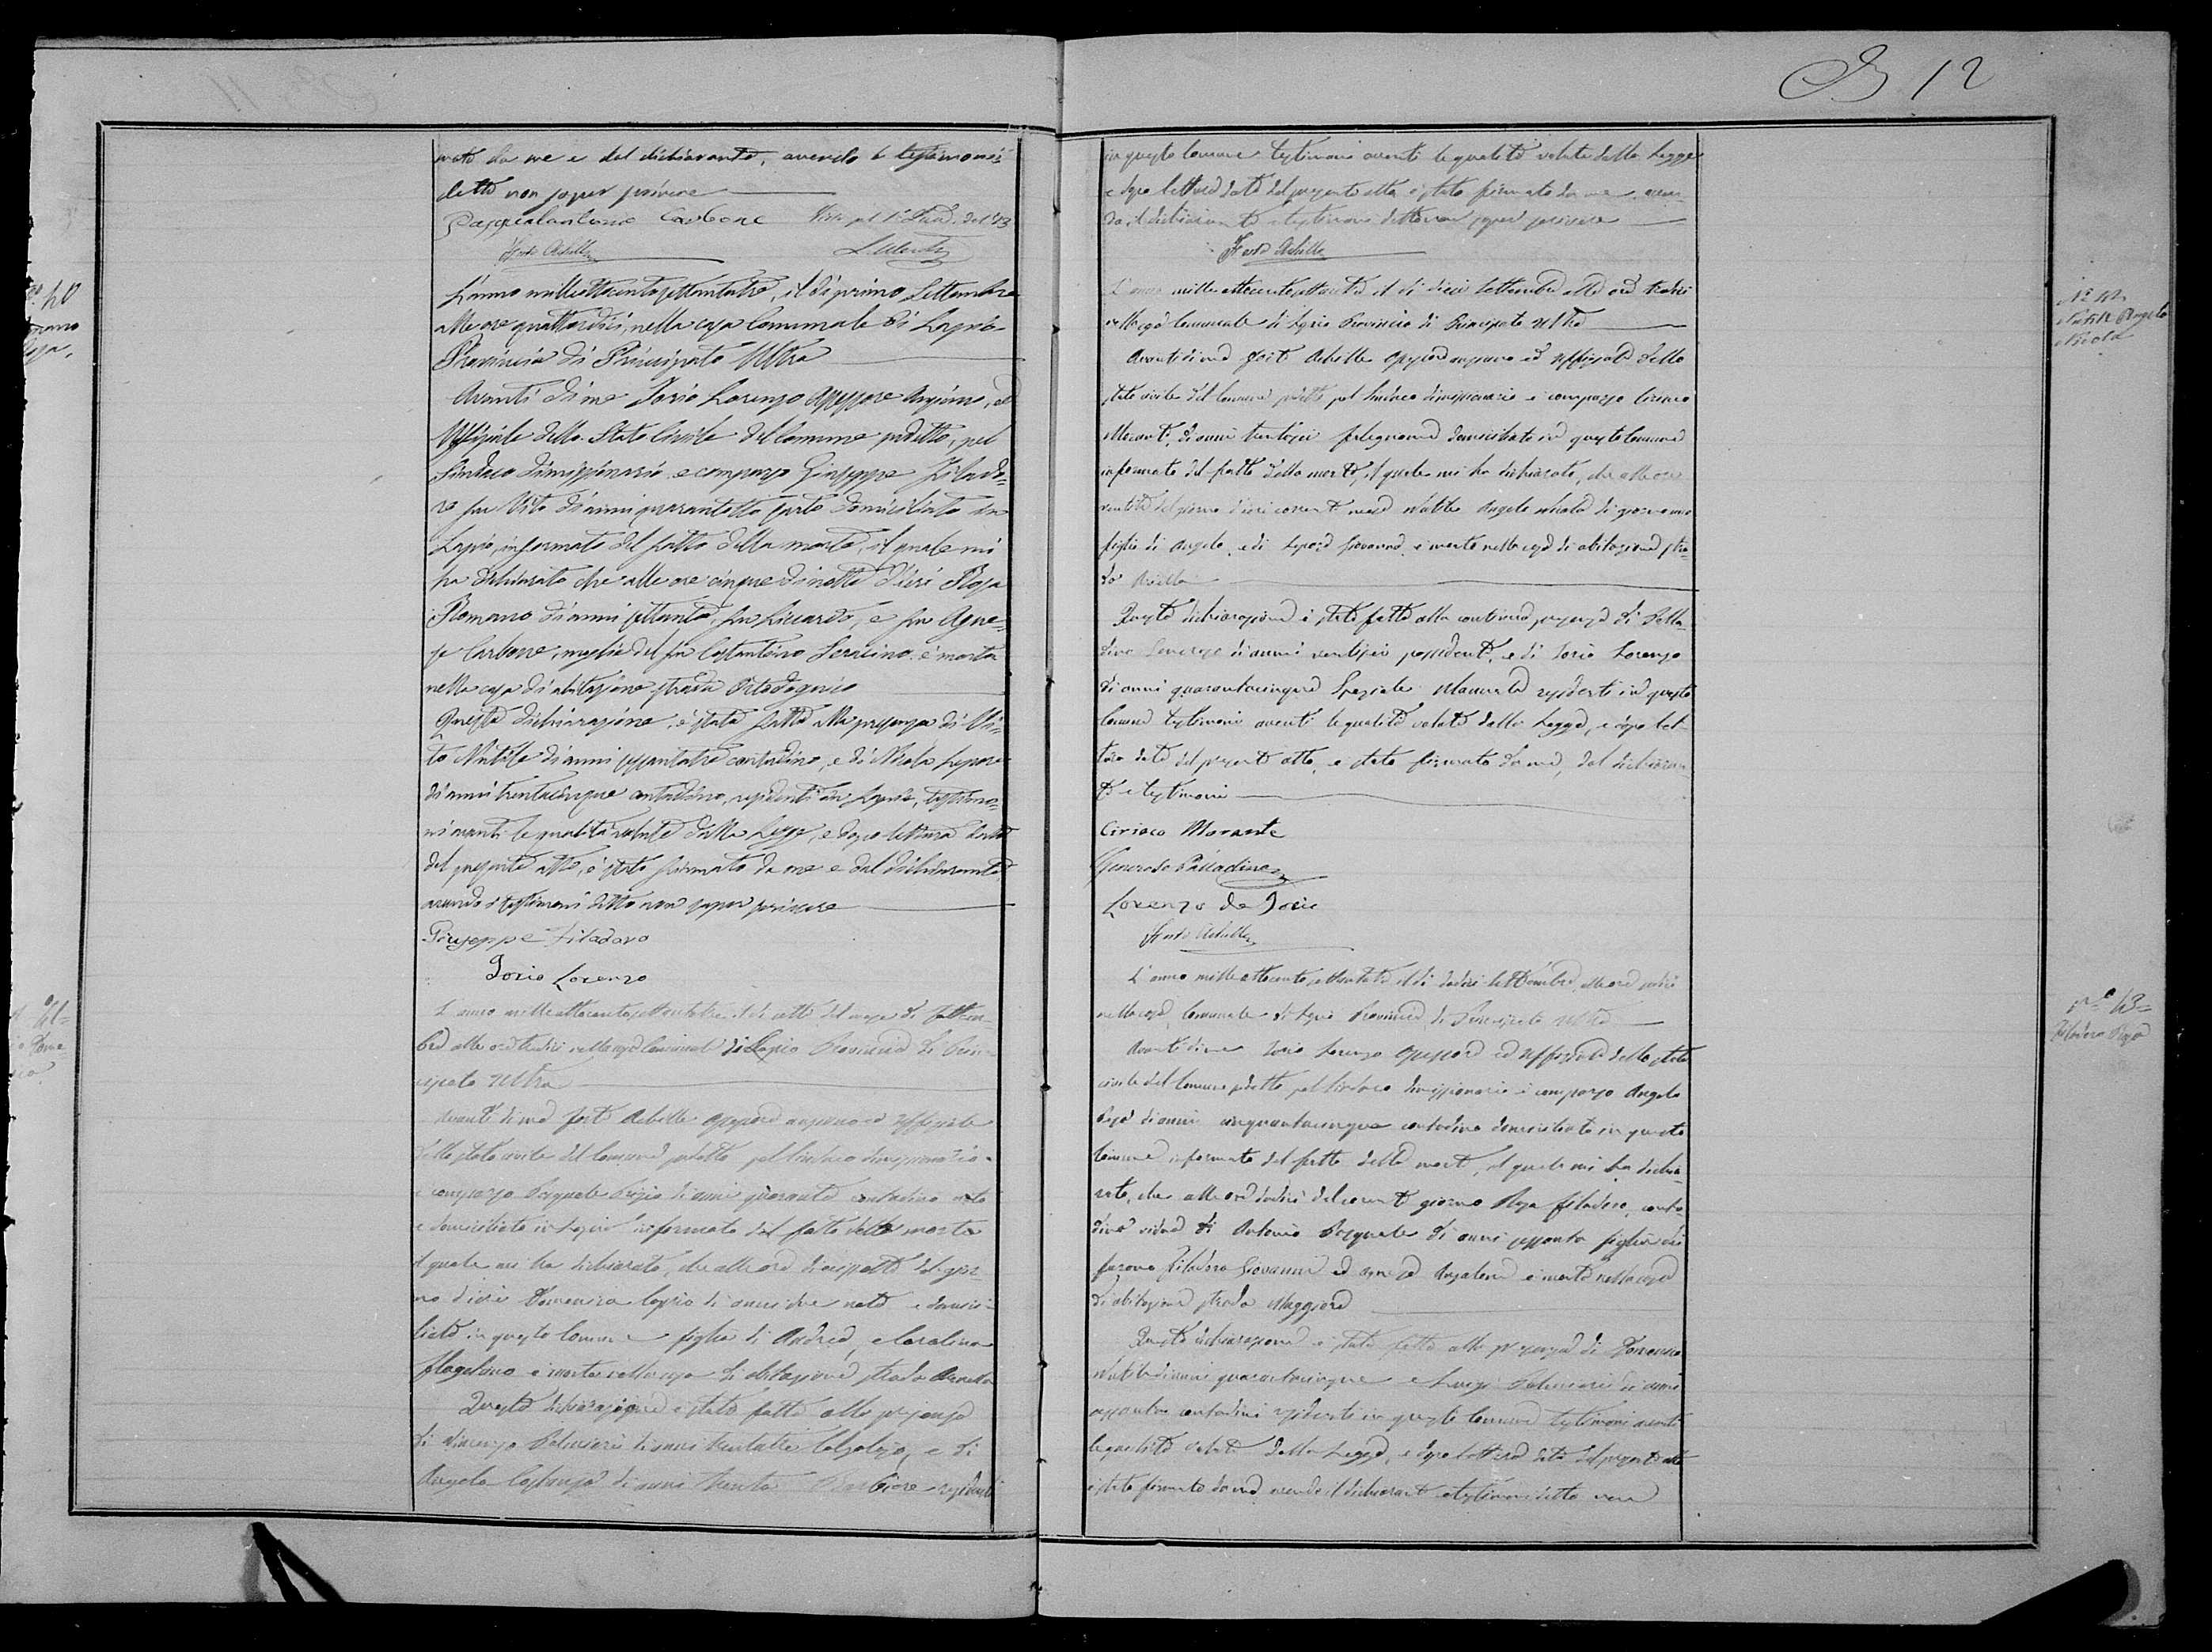 mato da me e dal dichiarante, avendo i testimonii
detto non saper scrivere
Pasqualantonio Carbone
Forte Achille
N.° 40
Romano
Rosa.
L'anno milleottocentosettantatre, il dì primo Settembre
alle ore quattordici, nella casa Comunale di Lapio
Provincia di Principato Ultra
Avanti di me Iorio Lorenzo Assessore Anziano, ed
Uffiziale dello Stato Civile del Comune sudetto, pel
Sindaco dimissionario è comparso Giuseppe Filado-
ro fu Vito di anni quarantotto sarto domiciliato in
Lapio, informato del fatto della morte, il quale mi
ha dichiarato che alle ore cinque di notte d'ieri Rosa
Romano di anni settanta, fu Liccardo, e fu Agne-
se Carbone, moglie del fu Costantino Seracino è morta
nella casa di abitazione strada
Questa dichiarazione, è stata fatta alla presenza di Vi-
to Natale di anni sessantatre contadino, e di Nicola Lepore
di anni trentacinque contadino, residenti in Lapio, testimo-
ni aventi le qualità volute dalla Legge, e dopo lettura data
del presente atto, è stato firmato da me e dal dichiarante,
avendo i testimoni detto non saper scrivere
Giuseppe Filadoro
Iorio Lorenzo
N.° 41=
L'anno milleottocentosettantatre il dì otto del mese di settem-
bre alle ore tredici nella casa Comunale di Lapio Provincia di Prin-
cipato Ultra
Avanti di me Forte Achille Assessore anziano ed uffiziale
dello stato civile del Comune sudetto pel Sindaco dimissionario
è comparso Pasquale di anni quaranta contadino nato
e domiciliato in Lapio informato del fatto della morte
il quale mi ha dichiarato, che alle ore diciassette del gior-
no d'ieri Domenica di anni due nata e domici-
liata in questo Comune figlia di Andrea, e Carolina
è morta nella casa di abitazione strada Arnella
Questa dichiarazione è stata fatta alla presenza
di Vincenzo di anni trentatre Calzolajo, e di
Angelo Costanza di anni trenta Barbiere residenti
B 12
in questo Comune testimoni aventi le qualità volute dalla Legge
e dopo lettura data del presente atto è stato firmato da me, aven-
do il dichiarante e testimoni detto non saper scrivere
Forte Achille
N.° 42
Natale Angelo
Nicola
L'anno milleottocentosettantatre il dì dieci Settembre alle ore tredici
nella casa Comunale di Lapio Provincia di Principato Ultra
Avanti di me Forte Achille Assessore anziano ed uffiziale dello
stato civile del Comune sudetto pel Sindaco dimissionario è comparso Ciriaco
Morante, di anni trentasei falegname domiciliato in questo Comune
informato del fatto della morte, il quale mi ha dichiarato, che alle ore
ventitre del giorno d'ieri corrente mese Natale Angelo Nicola di
figlio di Angelo, e di Lepore Giovanna, è morto nella casa di abitazione stra-
da Arnella
Questa dichiarazione è stata fatta alla continua presenza di Palla-
dino Generoso di anni ventisei possidente, e di Iorio Lorenzo
di anni quarantacinque Speziale Manuale residenti in questo
Comune testimoni aventi le qualità volute dalla Legge, e dopo let-
tura data del presente atto, è stato firmato da me, dal dichiaran-
te e testimoni
Ciriaco Morante
Generoso Palladino
Lorenzo de Iorio
Forte Achille
N.° 43=
Filadoro Rosa
L'anno milleottocentosettantatre il dì dodici Settembre, alle ore
nella casa Comunale di Lapio Provincia di Principato Ultra
Avanti di me Iorio Lorenzo Assessore ed uffiziale dello stato
civile del Comune sudetto pel Sindaco dimissionario è comparso Angelo
di anni cinquantacinque contadino domiciliato in questo
Comune informato del fatto della morte, il quale mi ha dichia-
rato, che alle ore dodici del corrente giorno Rosa Filadoro, conta-
dina vedova di Antonio Pasquale di anni sessanta figlia dei
furono Filadoro Giovanni ed Agnese è morta nella casa
di abitazione strada Maggiore
Questa dichiarazione è stata fatta alla presenza di Domenico
Natale di anni quarantacinque e Luigi di anni
contadini residenti in questo Comune testimoni aventi
le qualità volute dalla Legge, e dopo lettura data del presente atto
è stato firmato da me avendo il dichiarante e testimoni detto non